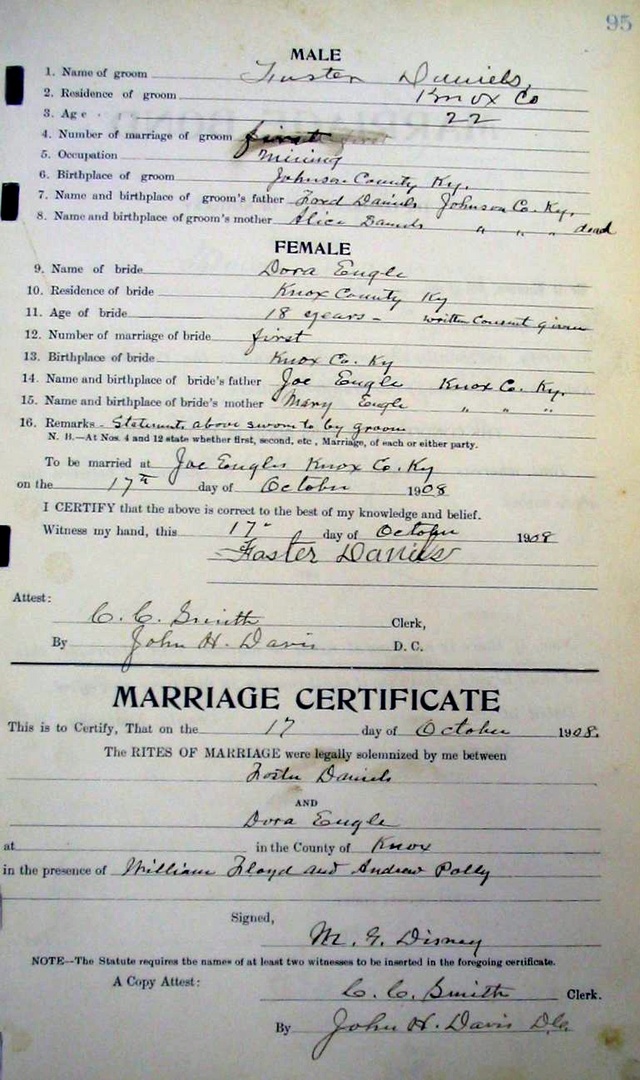 95
MALE
1. Name of groom Foster Daniels,
2. Residence of groom Knox Co
3. Age 22
4. Number of marriage of groom first
5. Occupation Mining
6. Birthplace of groom Johnson County Ky.
7. Name and birthplace of groom's father Ford Daniels Johnson Co. Ky,
8. Name and birthplace of groom's mother Alice Daniels " " " dead
FEMALE
9. Name of bride Dora Engle
10. Residence of bride Knox County Ky
11. Age of bride 18 years - written Consent given
12. Number of marriage of bride first
13. Birthplace of bride Knox Co. Ky
14. Name and birthplace of bride's father Joe Engle Knox Co. Ky,
15. Name and birthplace of bride's mother Mary Engle " " "
16. Remarks - Statement above sworn to by groom
N. B.—At Nos. 4 and 12 state whether first, second, etc, Marriage, of each or either party.
To be married at Joe Engles Knox Co. Ky
on the 17th day of October 1908
I CERTIFY that the above is correct to the best of my knowledge and belief.
Witness my hand, this 17" day of October 1908
Foster Daniels
Attest:
C. C. Smith Clerk,
By John H. Davis D. C.
MARRIAGE CERTIFICATE
This is to Certify, That on the 17 day of October 1908.
The RITES OF MARRIAGE were legally solemnized by me between
Foster Daniels
AND
Dora Engle
at in the County of Knox
in the presence of William Floyd and Andrew Polly
Signed,
M. G. Disney
NOTE—The Statute requires the names of at least two witnesses to be inserted in the foregoing certificate.
A Copy Attest:
C. C. Smith Clerk.
By John H. Davis D.C.